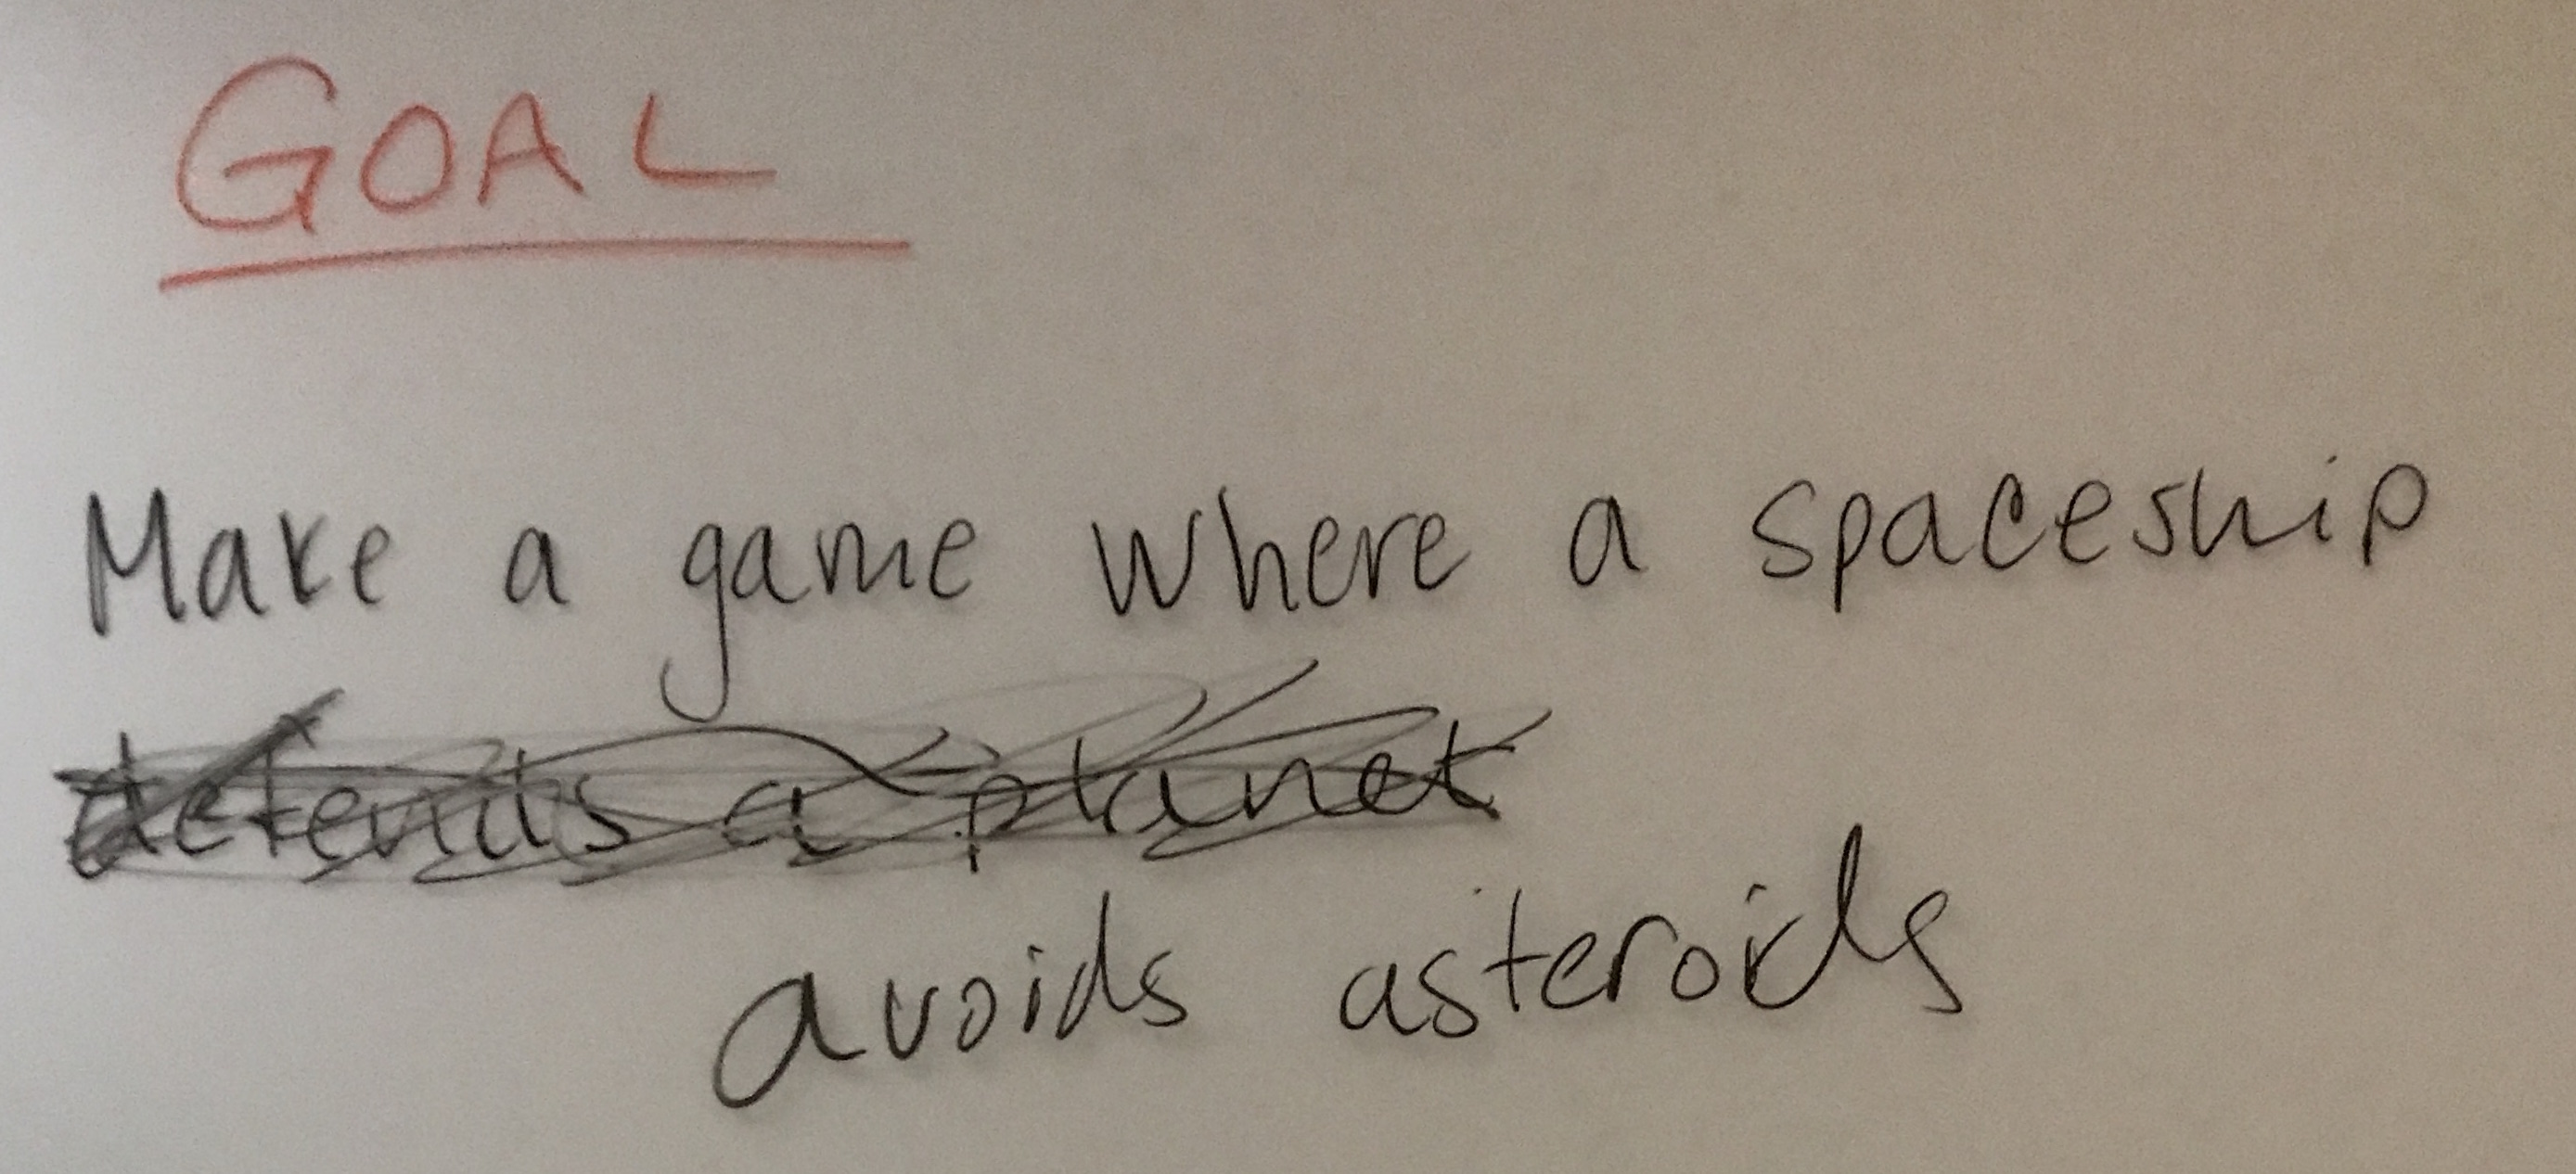 GOAL
Make a game where a spaceship
defends a planet
avoids asteroids